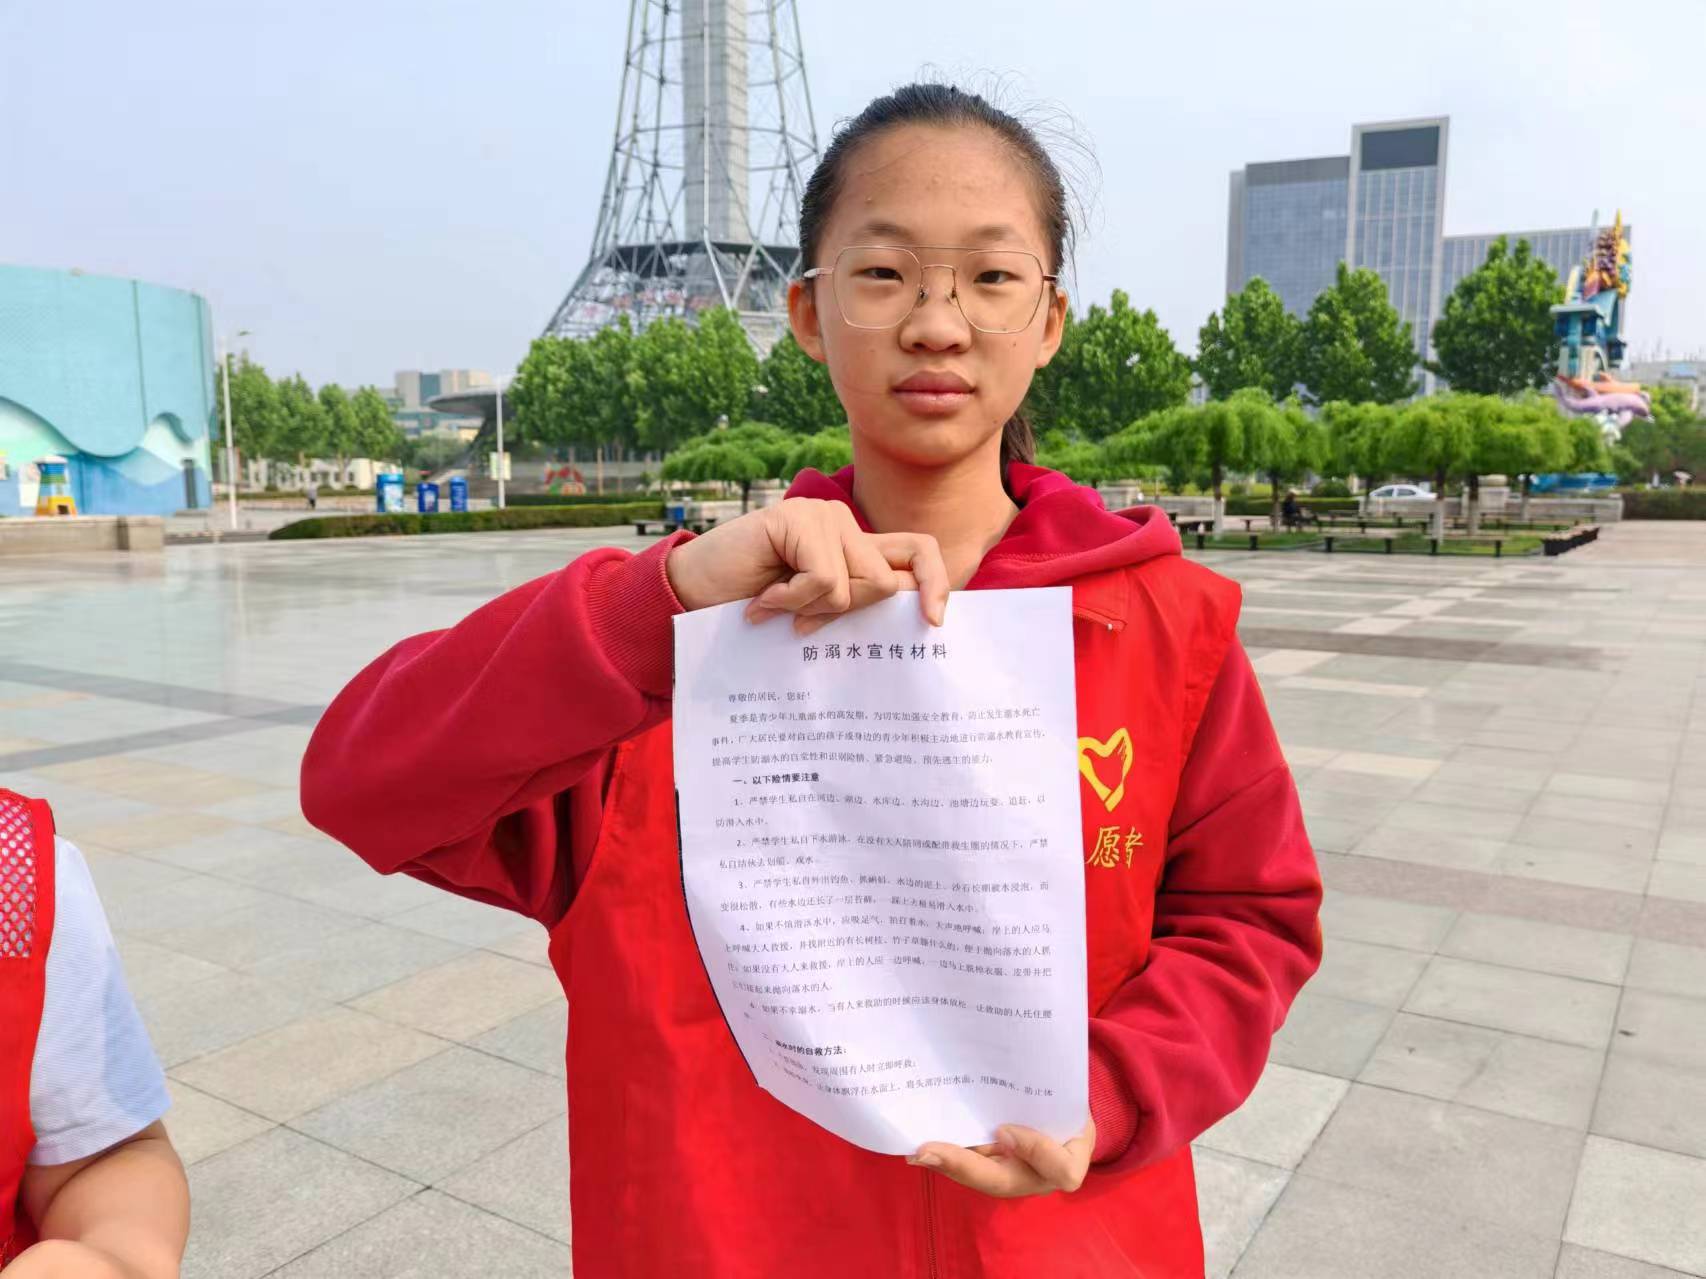 防溺水宣传材料
尊敬的居民，您好！
夏季是青少年儿童溺水的高发期，为切实加强安全教育，防止发生溺水死亡
事件，广大居民要对自己的孩子或身边的青少年积极主动地进行防溺水教育宣传，
提高学生防溺水的自觉性和识别险情、紧急避险、预先逃生的能力。
一、以下险情要注意
1、严禁学生私自在河边、湖边、水库边、水沟边、池塘边玩耍、追赶，以
防滑入水中。
2、严禁学生私自下水游泳，在没有大人陪同或配带救生圈的情况下，严禁
私自结伙去划船、戏水。
3、严禁学生私自外出钓鱼、抓蝌蚪，水边的泥土、沙石长期被水浸泡，而
变很松散，有些水边还长了一层苔藓，一踩上去极易滑入水中。
4、如果不慎滑落水中，应吸足气，拍打着水，大声地呼喊，岸上的人应马
上呼喊大人救援，并找附近的有长树枝、竹子草藤什么的，便于抛向落水的人抓
住，如果没有大人来救援，岸上的人应一边呼喊，一边马上脱掉衣服、皮带并把
它们接起来抛向落水的人。
如果不幸溺水，当有人来救助的时候应该身体放松，让救助的人托住腰
水时的自救方法：
发现周围有人时立即呼救；
让身体飘浮在水面上，将头部浮出水面，用脚踢水，防止体
愿者